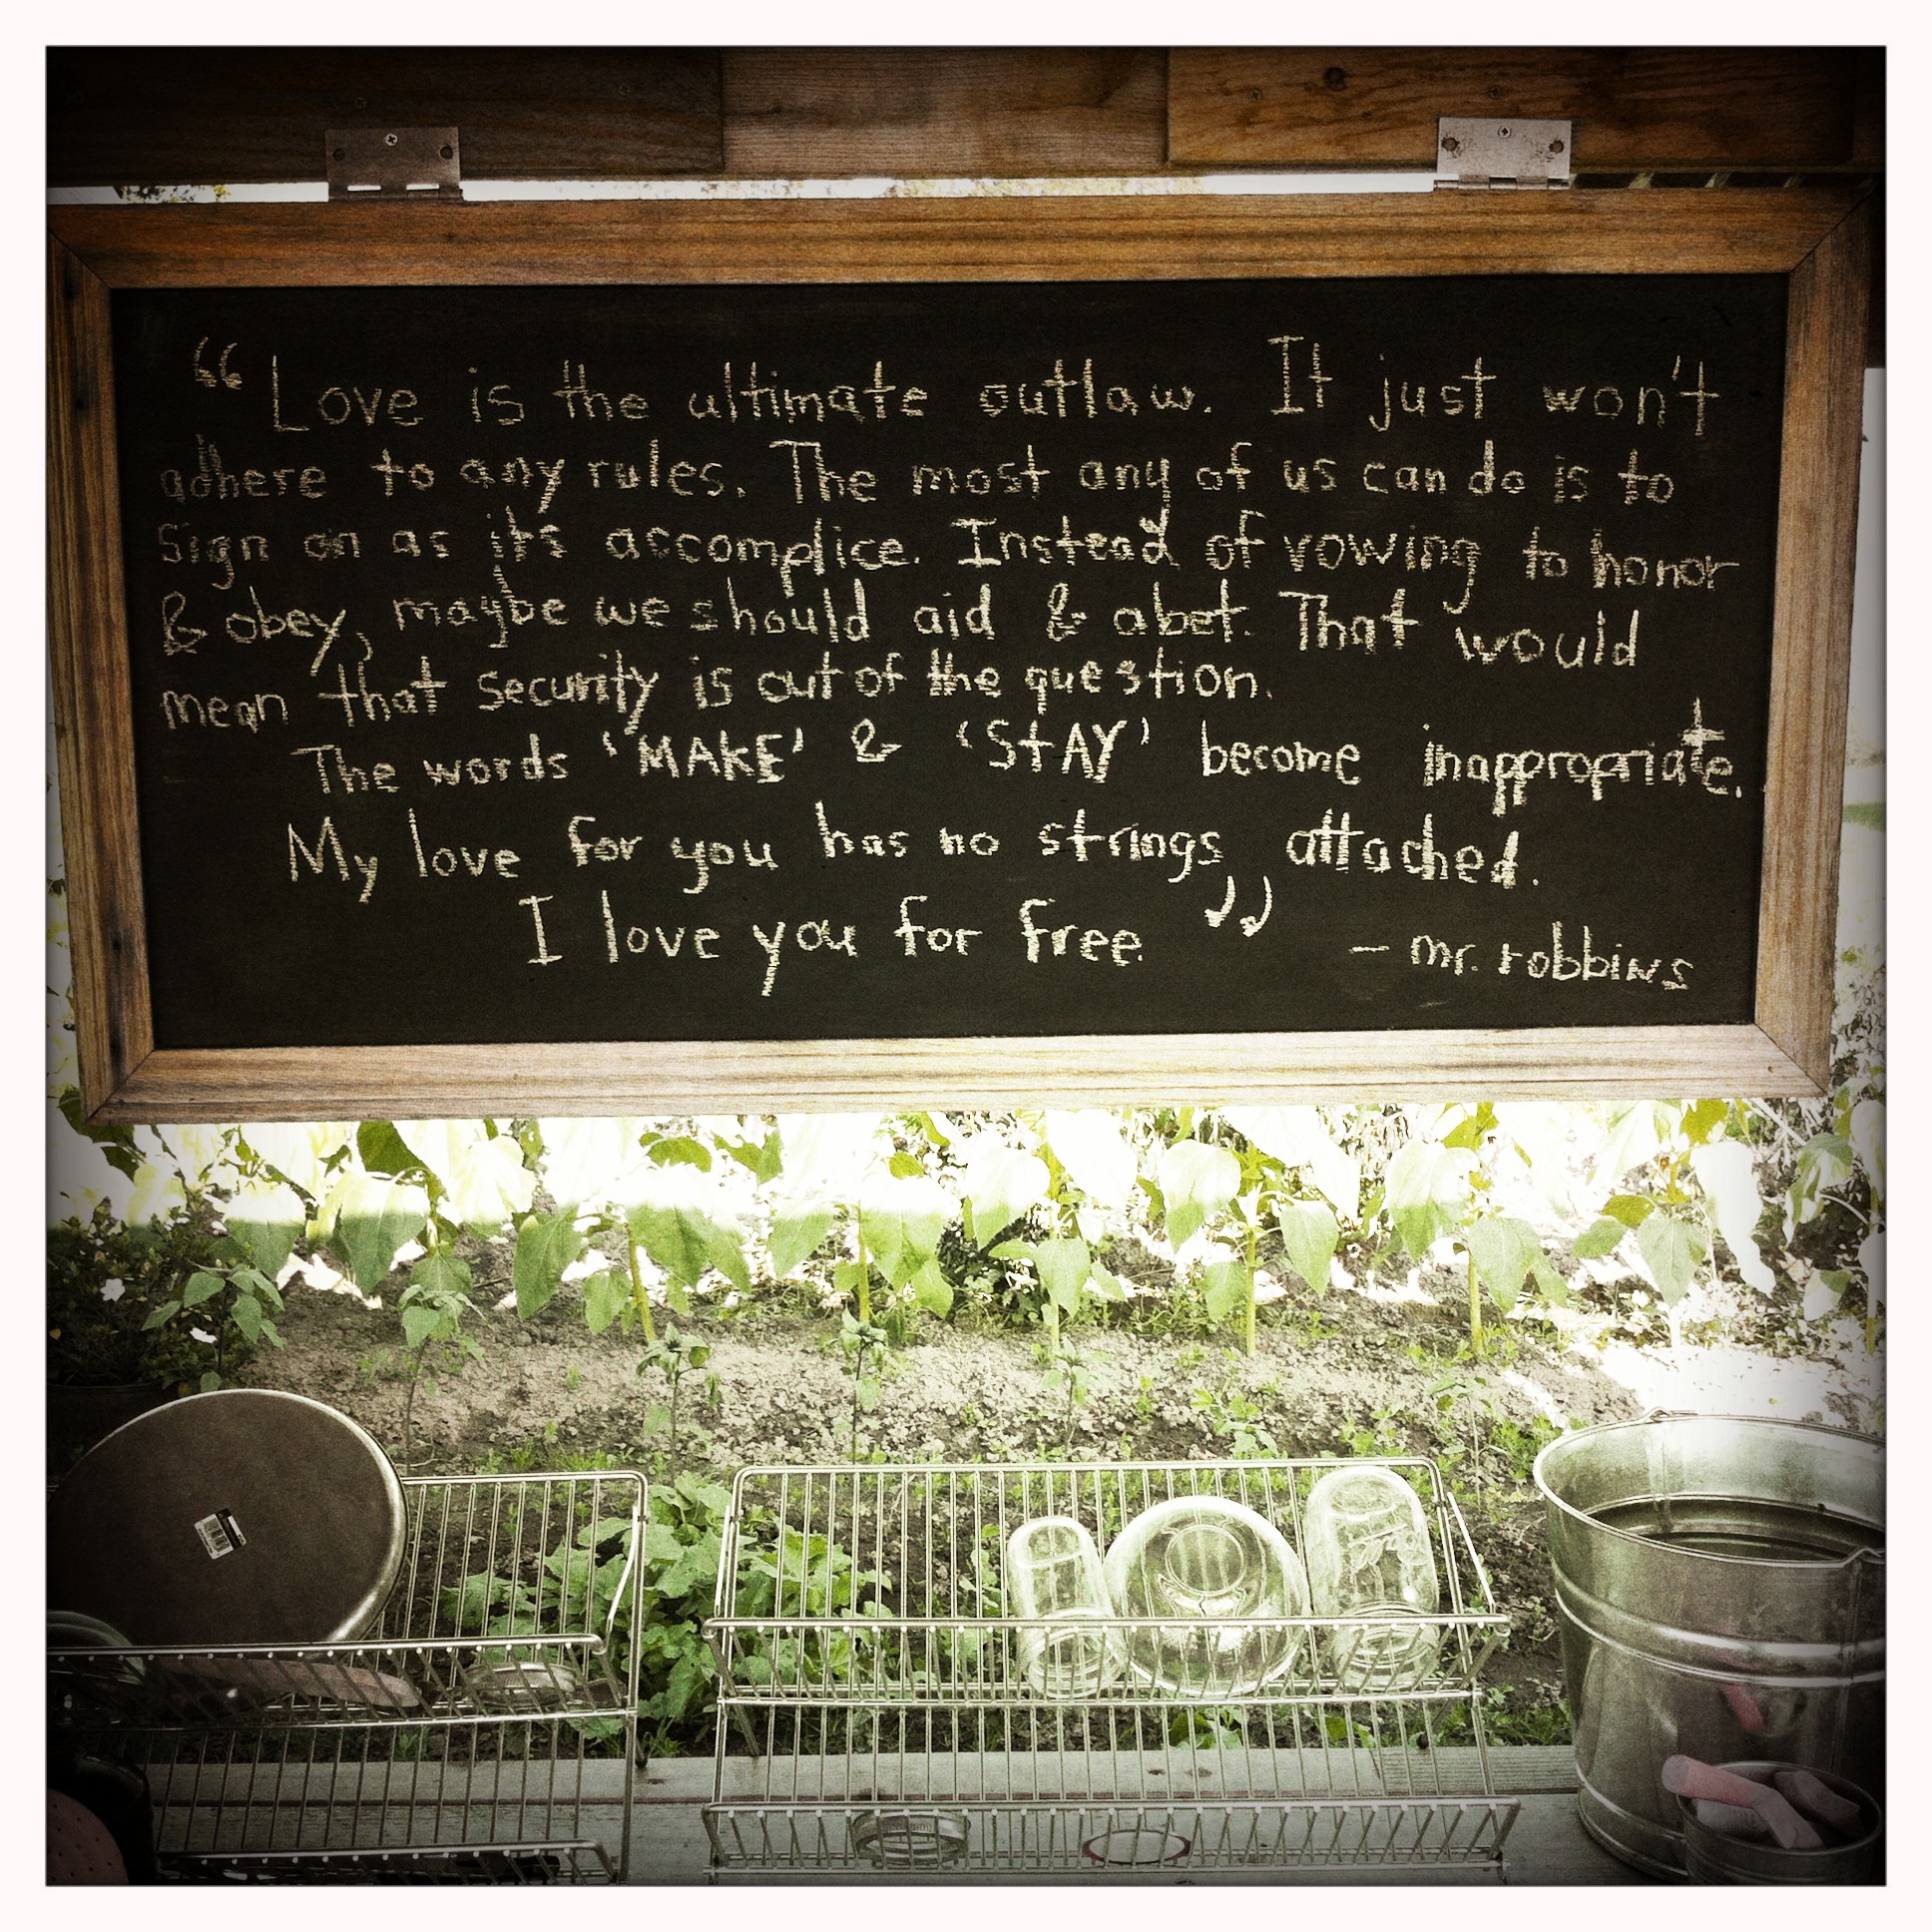 “ Love is the ultimate outlaw. It just won't
adhere to any rules. The most any of us can do is to
Sign on as its accomplice. Instead of vowing to honor
& obey, maybe we should aid & abet. That would
mean that security is out of the question.
The words 'MAKE' & 'STAY' become inappropriate.
My love for you has no strings attached.
I love you for free. ” – mr. robbins